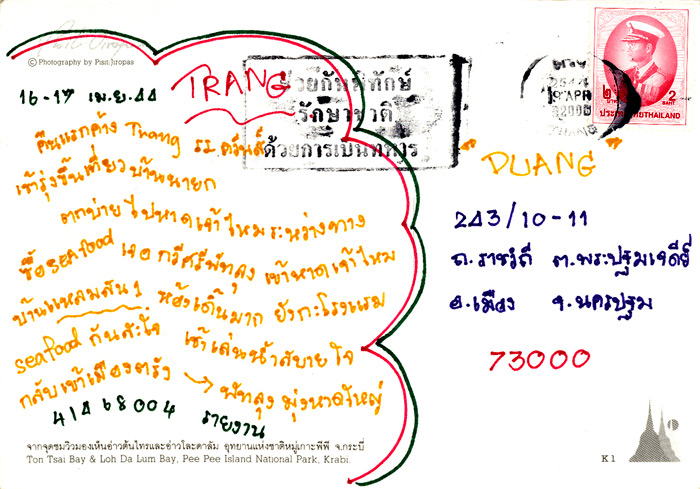 © Photography by Pisit Jiropas
TRANG
16-17 เม.ย. 44
คืนแรกค้าง Trang รร. ตรัง
เช้ารุ่งขึ้นเที่ยวบ้านนายก
ตกบ่ายไปหาดเจ้าไหมระหว่างทาง
ซื้อ seafood เจอ เข้าหาดเจ้าไหม
บ้านแหลมสน 1 ห้องเดิ้นมาก ยังกะโรงแรม
seafood กันสะใจ เช้าเล่นน้ำสบายใจ
กลับเข้าเมืองตรัง → พัทลุง มุ่งหาดใหญ่
41468004 รายงาน
ช่วยกันพิทักษ์
รักษาชาติ
ด้วยการเป็นทหาร
2544
19 APR
92000
TRANG
2 บาท 2 BAHT
ประเทศไทย THAILAND
"DUANG"
243/10-11
ถ.ราชวิถี ต.พระปฐมเจดีย์
อ.เมือง จ.นครปฐม
73000
จากจุดชมวิวมองเห็นอ่าวต้นไทรและอ่าวโละดาลัม อุทยานแห่งชาติหมู่เกาะพีพี จ.กระบี่
Ton Tsai Bay & Loh Da Lum Bay, Pee Pee Island National Park, Krabi.
K1